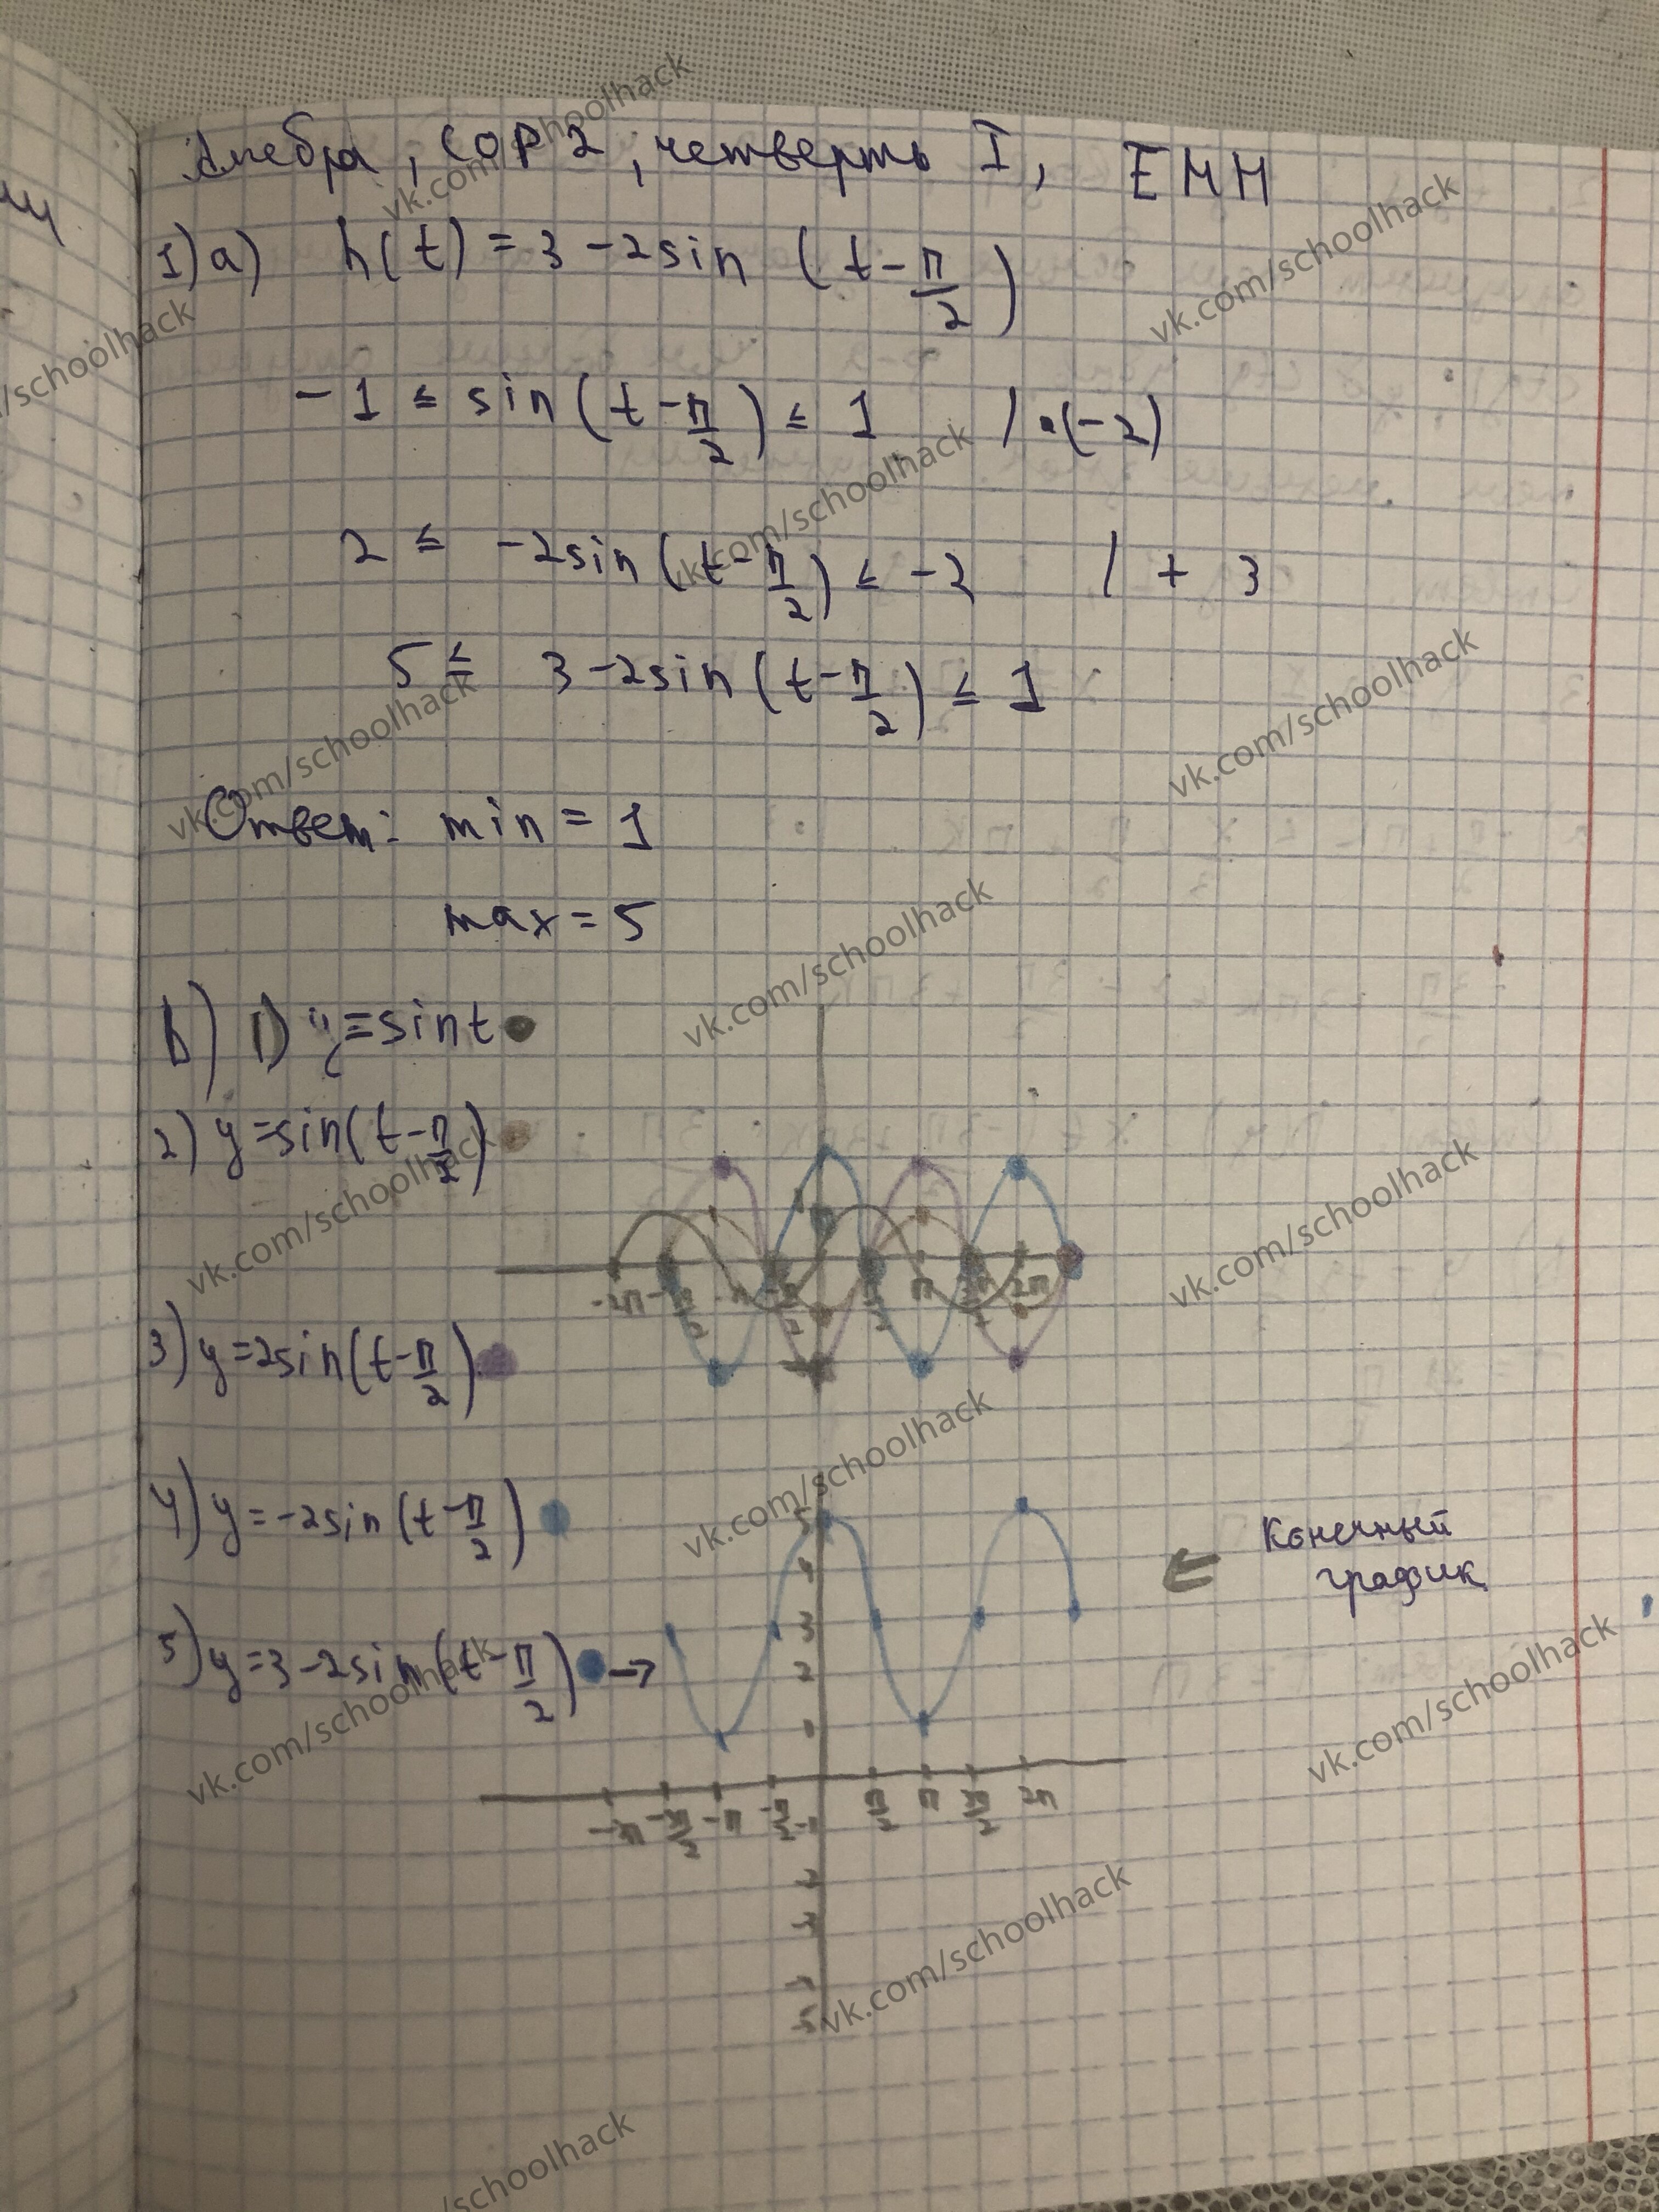 Алгебра, СОР 2, четверть I, ЕМН
1) a) h(t) = 3 - 2sin (t - π/2)
-1 ≤ sin (t - π/2) ≤ 1 / •(-2)
2 ≤ -2sin (t - π/2) ≤ -2 / + 3
5 ≤ 3 - 2sin (t - π/2) ≤ 1
Ответ: min = 1
max = 5
b) 1) y = sin t
2) y = sin(t - π/2)
-2π -3π/2 -π -π/2 π/2 π 3π/2 2π
3) y = 2sin(t - π/2)
4) y = -2sin(t - π/2)
Конечный
график
5) y = 3 - 2sin(t - π/2) →
5
4
3
2
1
-2π -3π/2 -π -π/2 π/2 π 3π/2 2π
-1
-2
-3
-4
-5
vk.com/schoolhack
vk.com/schoolhack
/schoolhack
vk.com/schoolhack
vk.com/schoolhack
vk.com/schoolhack
vk.com/schoolhack
vk.com/schoolhack
vk.com/schoolhack
vk.com/schoolhack
vk.com/schoolhack
vk.com/schoolhack
vk.com/schoolhack
vk.com/schoolhack
/schoolhack